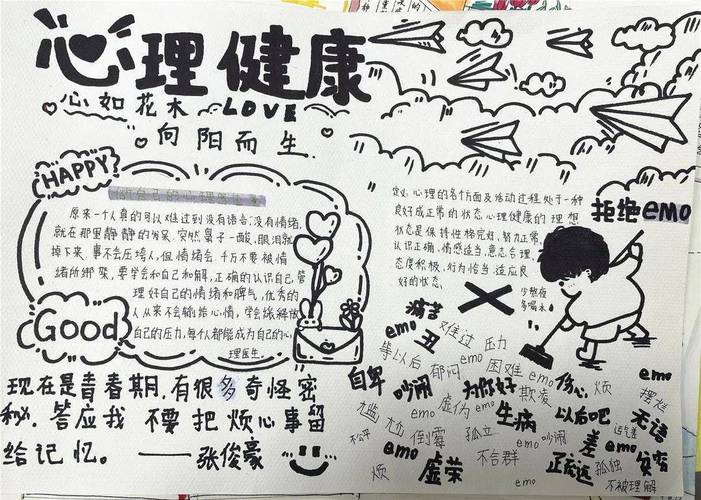 心理健康
心如花木
LOVE
向阳而生
HAPPY
做自己的心理医生
原来一个人真的可以难过到没有语言,没有情绪,
就在那里静静的发呆.突然鼻子一酸,眼泪就
掉下来.事不会压垮人,但情绪会.千万不要被情
绪所绑架,要学会和自己和解,正确的认识自己,管
理好自己的情绪和脾气,优秀的
人从来不会输给心情,学会缓释放
自己的压力,每个人都能成为自己的心
理医生.
Good
定义:心理的各个方面及活动过程处于一种
良好或正常的状态.心理健康的理想
状态是保持性格完好、智力正常、
认识正确、情感适当、意志合理、
态度积极、行为恰当、适应良
好的状态.
拒绝emo
少熬夜
多喝水
现在是青春期.有很多奇怪密
秘.答应我 不要把烦心事留
给记忆。——张俊豪
痛苦
emo
丑
难过
压力
等以后
郁闷
emo
困难
emo
自卑
吵闹
为你好
欺凌
伤心
烦
emo
摆烂
尴尬
emo
虚伪
emo
生病
以后吧
无语
不公平
倒霉
孤立
emo
吵闹
差
运气差
emo
烦
emo
虚荣
不合群
emo
孤独
安穷
不被理解